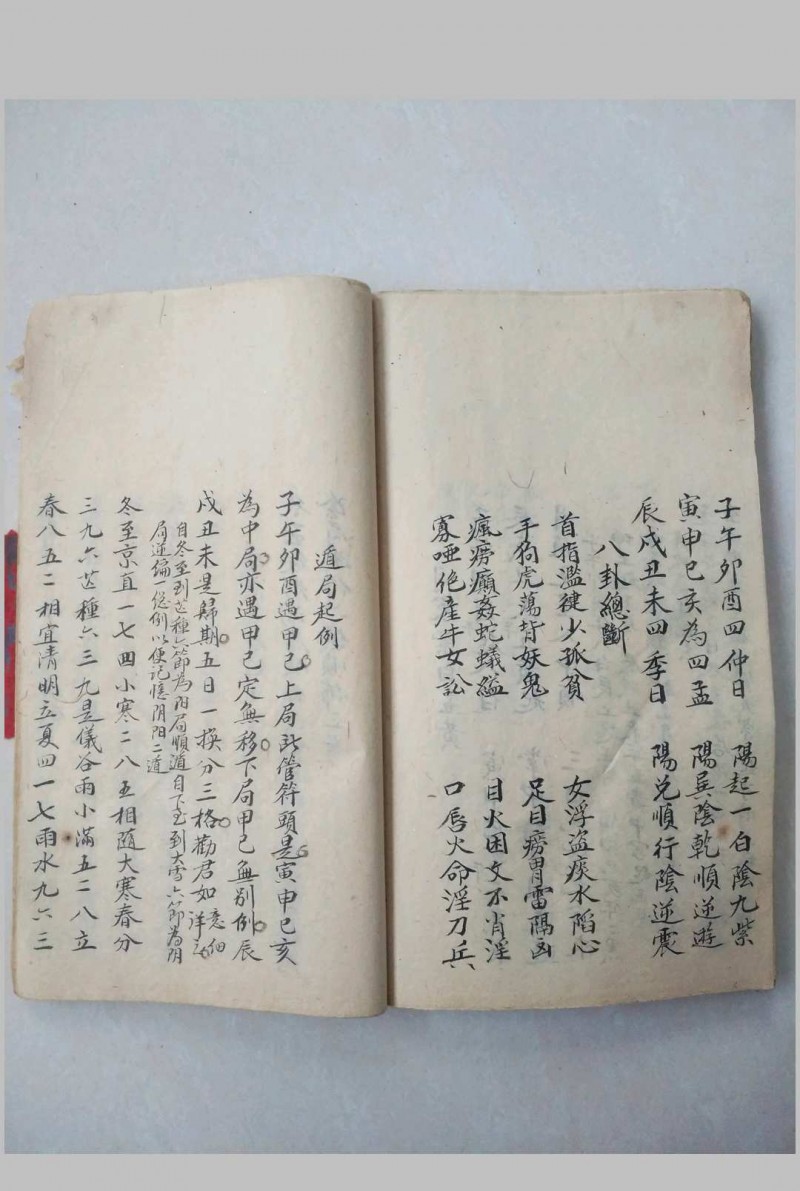 子午卯酉四仲日　陽起一白陰九紫
寅申巳亥為四孟　陽巽陰乾順逆遊
辰戌丑未四季日　陽兌順行陰逆震
八卦總斷
首指濫褪少孤貧　女浮盜痰水陷心
手狗虎蕩背妖鬼　足目癆胃雷隔凶
瘋癆癲姦蛇蟻縊　目火困文不肖淫
寡啞伧産牛女訟　口唇火命淫刀兵
遁局起例
子午卯酉遇甲己上局此管符頭是寅申巳亥
為中局亦遇甲己定無移下局甲己無別例辰
戌丑未是歸期五日一換分三格勸君如意細詳玄
自冬至到芒種六節為阳局順遁自下至到大雪六節為阴
局逆遍一怹例以便记憶阴阳二道
冬至京直一七四小寒二八五相隨大寒春分
三九六芒種六三九是儀谷雨小滿五二八立
春八五二相宜清明立夏四一七雨水九六三